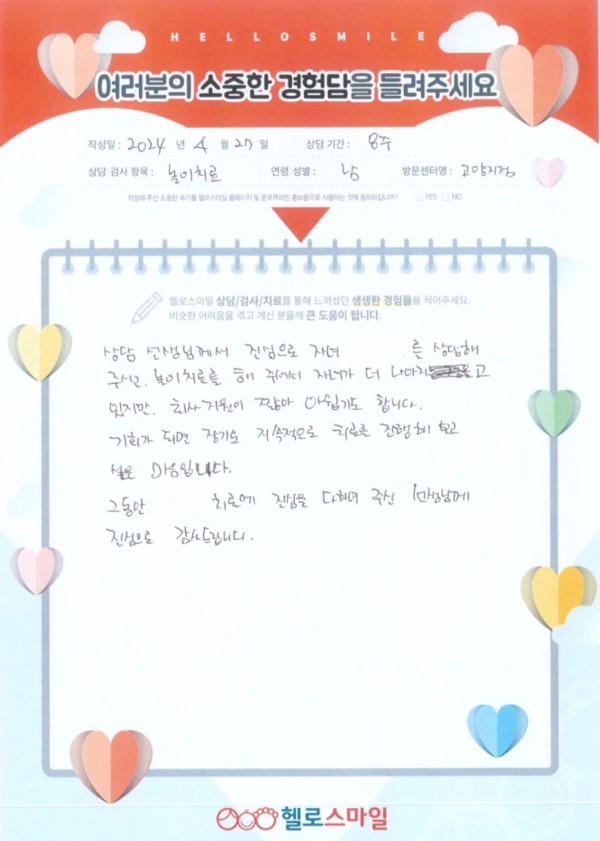 HELLOSMILE
여러분의 소중한 경험담을 들려주세요
작성일 : 2024 년 4 월 27 일 상담 기간 : 8주
상담 검사 항목 : 놀이치료 연령 성별 : 남 방문센터명 : 고양지점
작성해 주신 소중한 후기를 헬로스마일 홈페이지 및 온오프라인 홍보물으로 사용하는 것에 동의하십니까? YES NO
헬로스마일 상담/검사/치료를 통해 느끼셨던 생생한 경험들을 적어주세요.
비슷한 어려움을 겪고 계신 분들께 큰 도움이 됩니다.
상담 선생님께서 진심으로 자녀 를 상담해
주신, 놀이치료를 해 주에서 자녀가 더 나아지고
있지만, 회사 지원이 짧아 아쉽기도 합니다.
기회가 되면 장기로 지속적으로 치료를 진행해 보고
싶은 마음입니다.
그동안 치료에 진심을 다하여 주신 선생님께
진심으로 감사드립니다.
헬로스마일